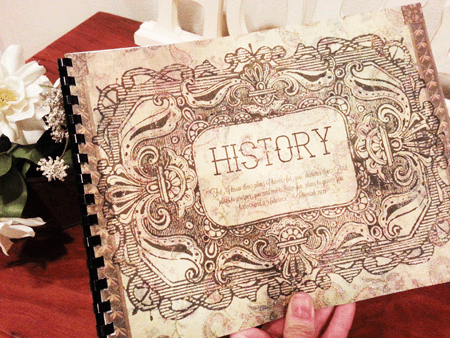 HISTORY
For I know the plans I have for you," declares the Lord,
"plans to prosper you and not to harm you, plans to give you
hope and a future." Jeremiah 29:11